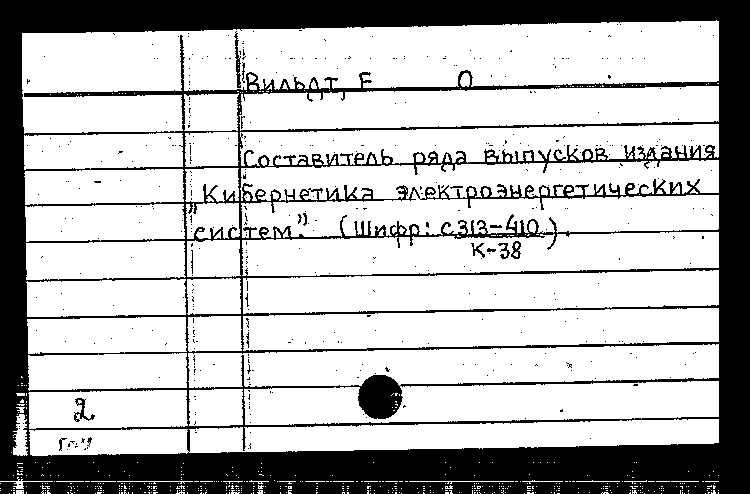 Вильдт, Е О
Составитель ряда выпусков издания
„Кибернетика электроэнергетических
систем". (Шифр: с 313-410
К-38 ).
2